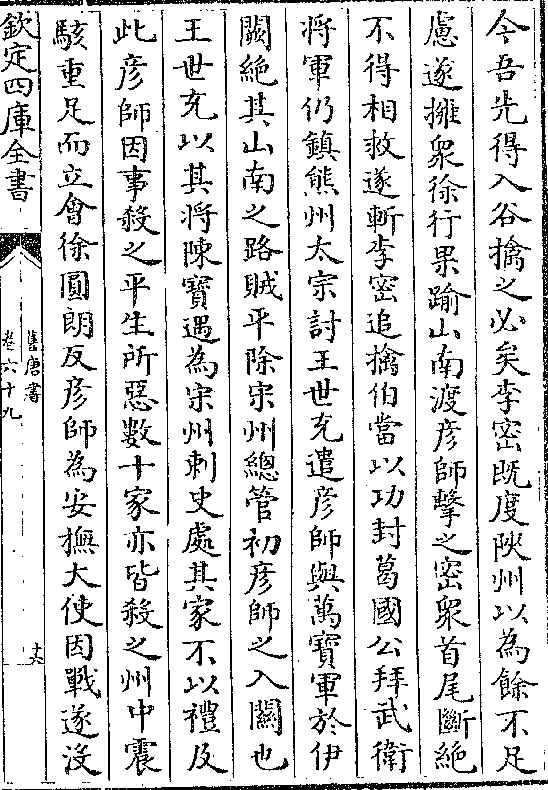 今吾先得入谷擒之必矣李密既度陜州以為餘不足
慮遂擁衆徐行果踰山南渡彦師擊之密衆首尾斷絶
不得相救遂斬李密追擒伯當以功封葛國公拜武衛
將軍仍鎮熊州太宗討王世充遣彦師與萬寶軍於伊
闕絶其山南之路賊平除宋州總管初彦師之入關也
王世充以其將陳寶遇為宋州刺史處其家不以禮及
此彦師因事殺之平生所惡數十家亦皆殺之州中震
駭重足而立會徐圓朗反彦師為安撫大使因戰遂沒
欽定四庫全書
舊唐書
卷六十九
十六